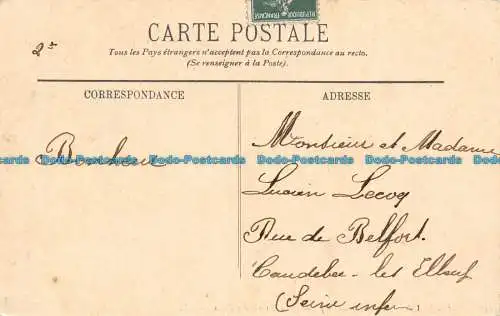 RÉPUBLIQUE FRANÇAISE
2
CARTE POSTALE
Tous les Pays étrangers n'acceptent pas la Correspondance au recto.
(Se renseigner à la Poste).
CORRESPONDANCE
ADRESSE
Bonheur
Monsieur et Madame
Lucien Lecoq
Rue de Belfort.
Caudebec-les Elbeuf
(Seine infer
Dodo-Postcards Dodo-Postcards Dodo-Postcards Dodo-Postcards Dodo-Postcards